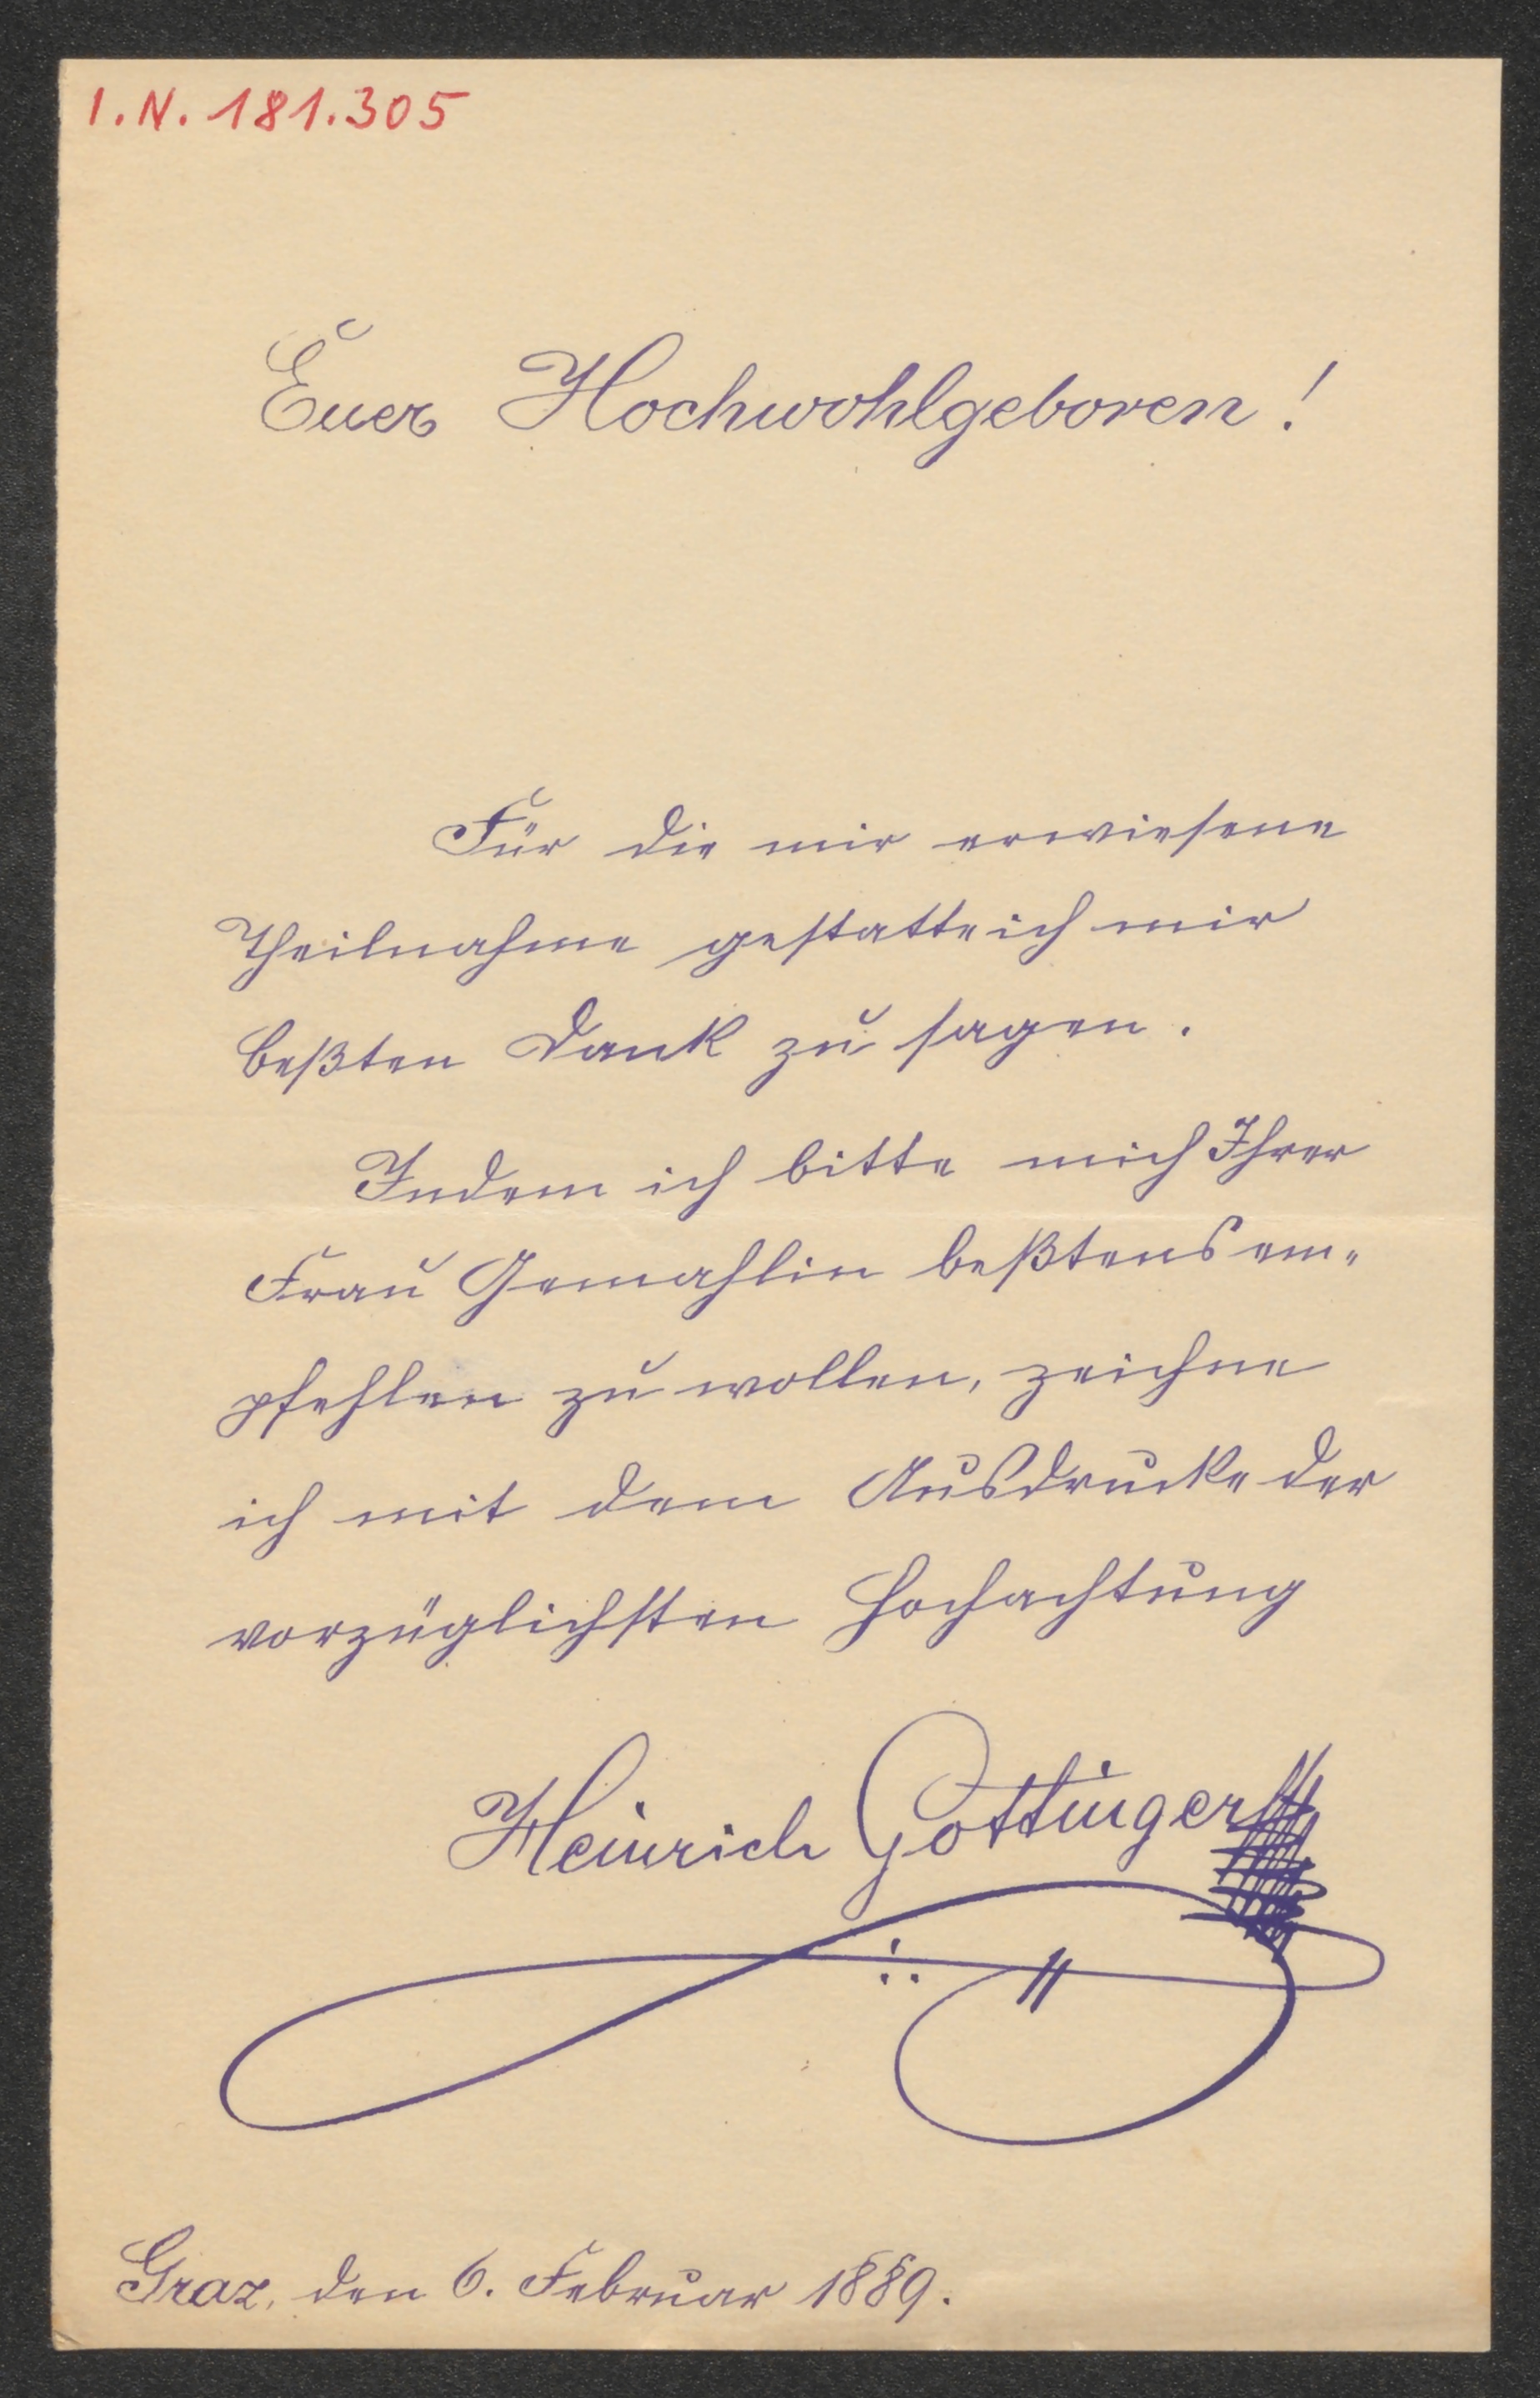 I.N. 181.305
Euer Hochwohlgeboren!
Für die mir erwiesene
Theilnahme gestatte ich mir
beßten Dank zu sagen.
Indem ich bitte mich Ihrer
Frau Gemahlin beßtens em-
pfehlen zu wollen, zeichne
ich mit dem Ausdrucke der
vorzüglichsten Hochachtung
Heinrich Gottinger
Graz, den 6. Februar 1889.